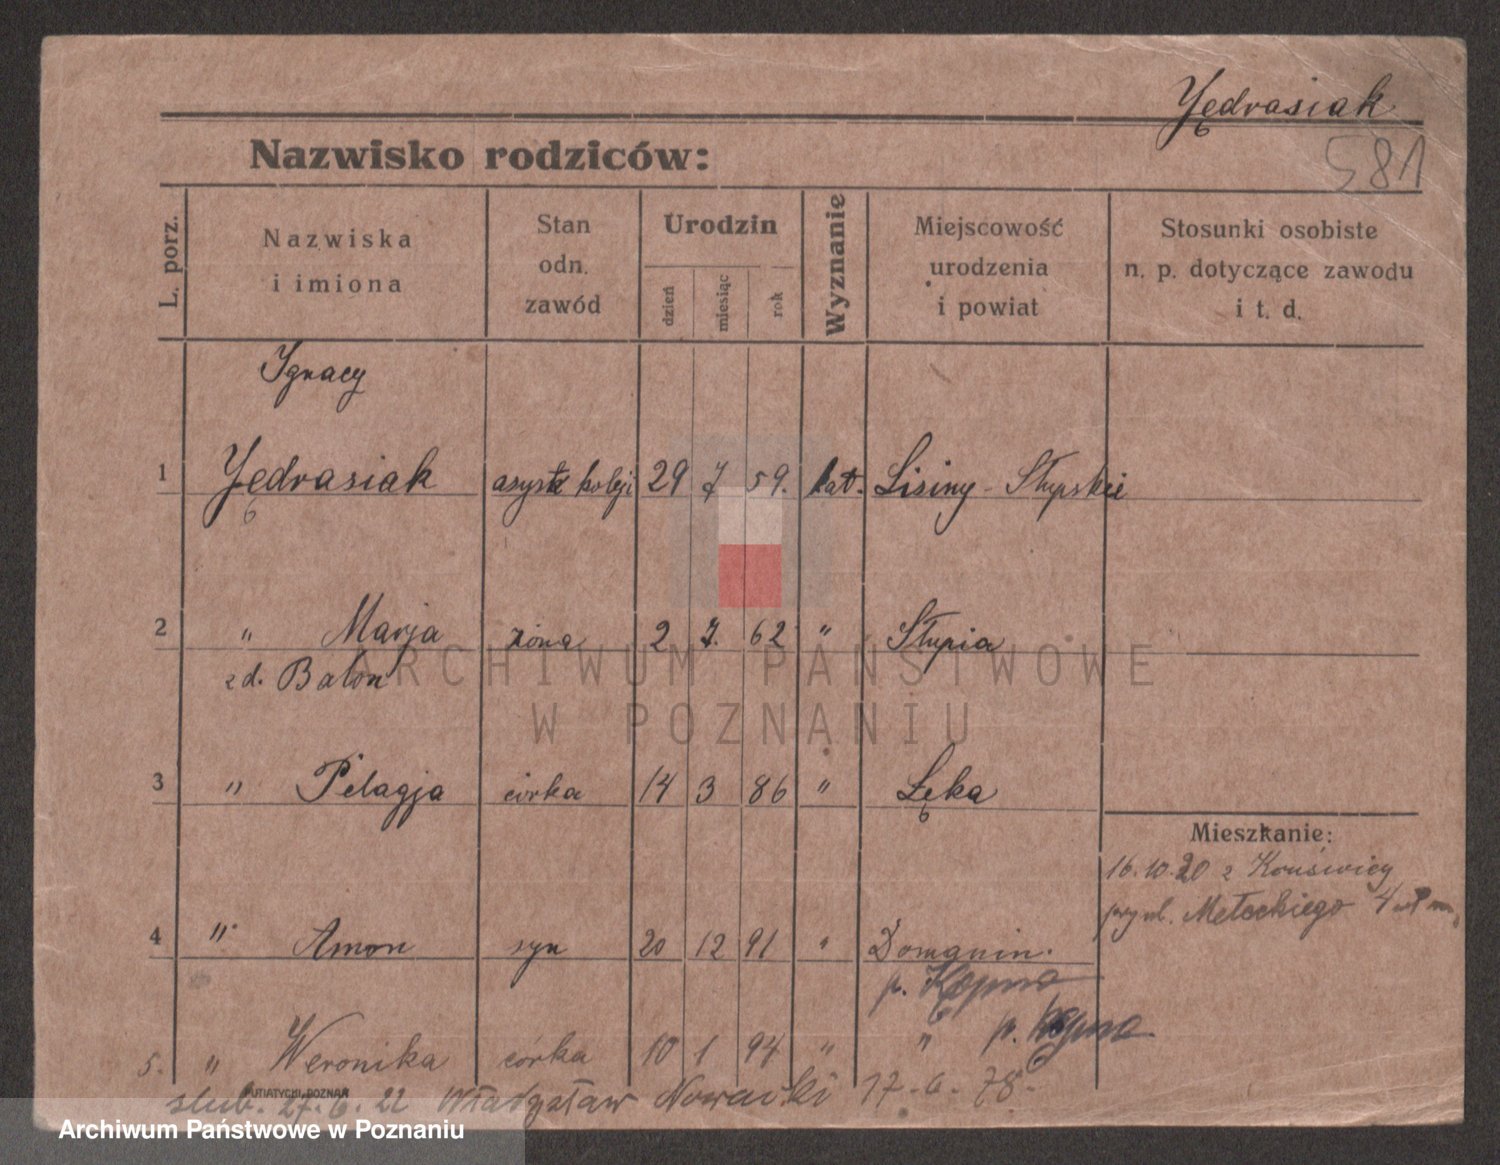 Jędrasiak
581
Nazwisko rodziców:
L. porz.
Nazwiska
i imiona
Stan
odn.
zawód
Urodzin
dzień
miesiąc
rok
Wyznanie
Miejscowość
urodzenia
i powiat
Stosunki osobiste
n. p. dotyczące zawodu
i t. d.
Ignacy
1 Jędrasiak asyst. kolej 29 7 59. kat. Lisiny - Słupskie
2 " Marja żona 2 7. 62 " Słupia
z d. Balon
3 " Pelagja córka 14 3 86 " Łęka
Mieszkanie:
16.10.20 z
przy ul.
4 " syn 20 12 91 " Domanin.
p. Kępno
" p. Kępno
5. " Weronika córka 10 1 94 "
PUTIATYCKI, POZNAŃ
ślub. 27.6.22 Władysław Nowacki 17.6.78.
ARCHIWUM PAŃSTWOWE
W POZNANIU
Archiwum Państwowe w Poznaniu